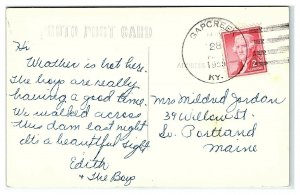 PHOTO POST CARD
GAPCREEK
28
KY.
Hi
Weather is hot here.
The boys are really
having a good time.
We walked across
this dam last night
It's a beautiful sight
Edith
& The Boys
Mrs Mildred Jordon
34 Willow St.
So. Portland
Maine